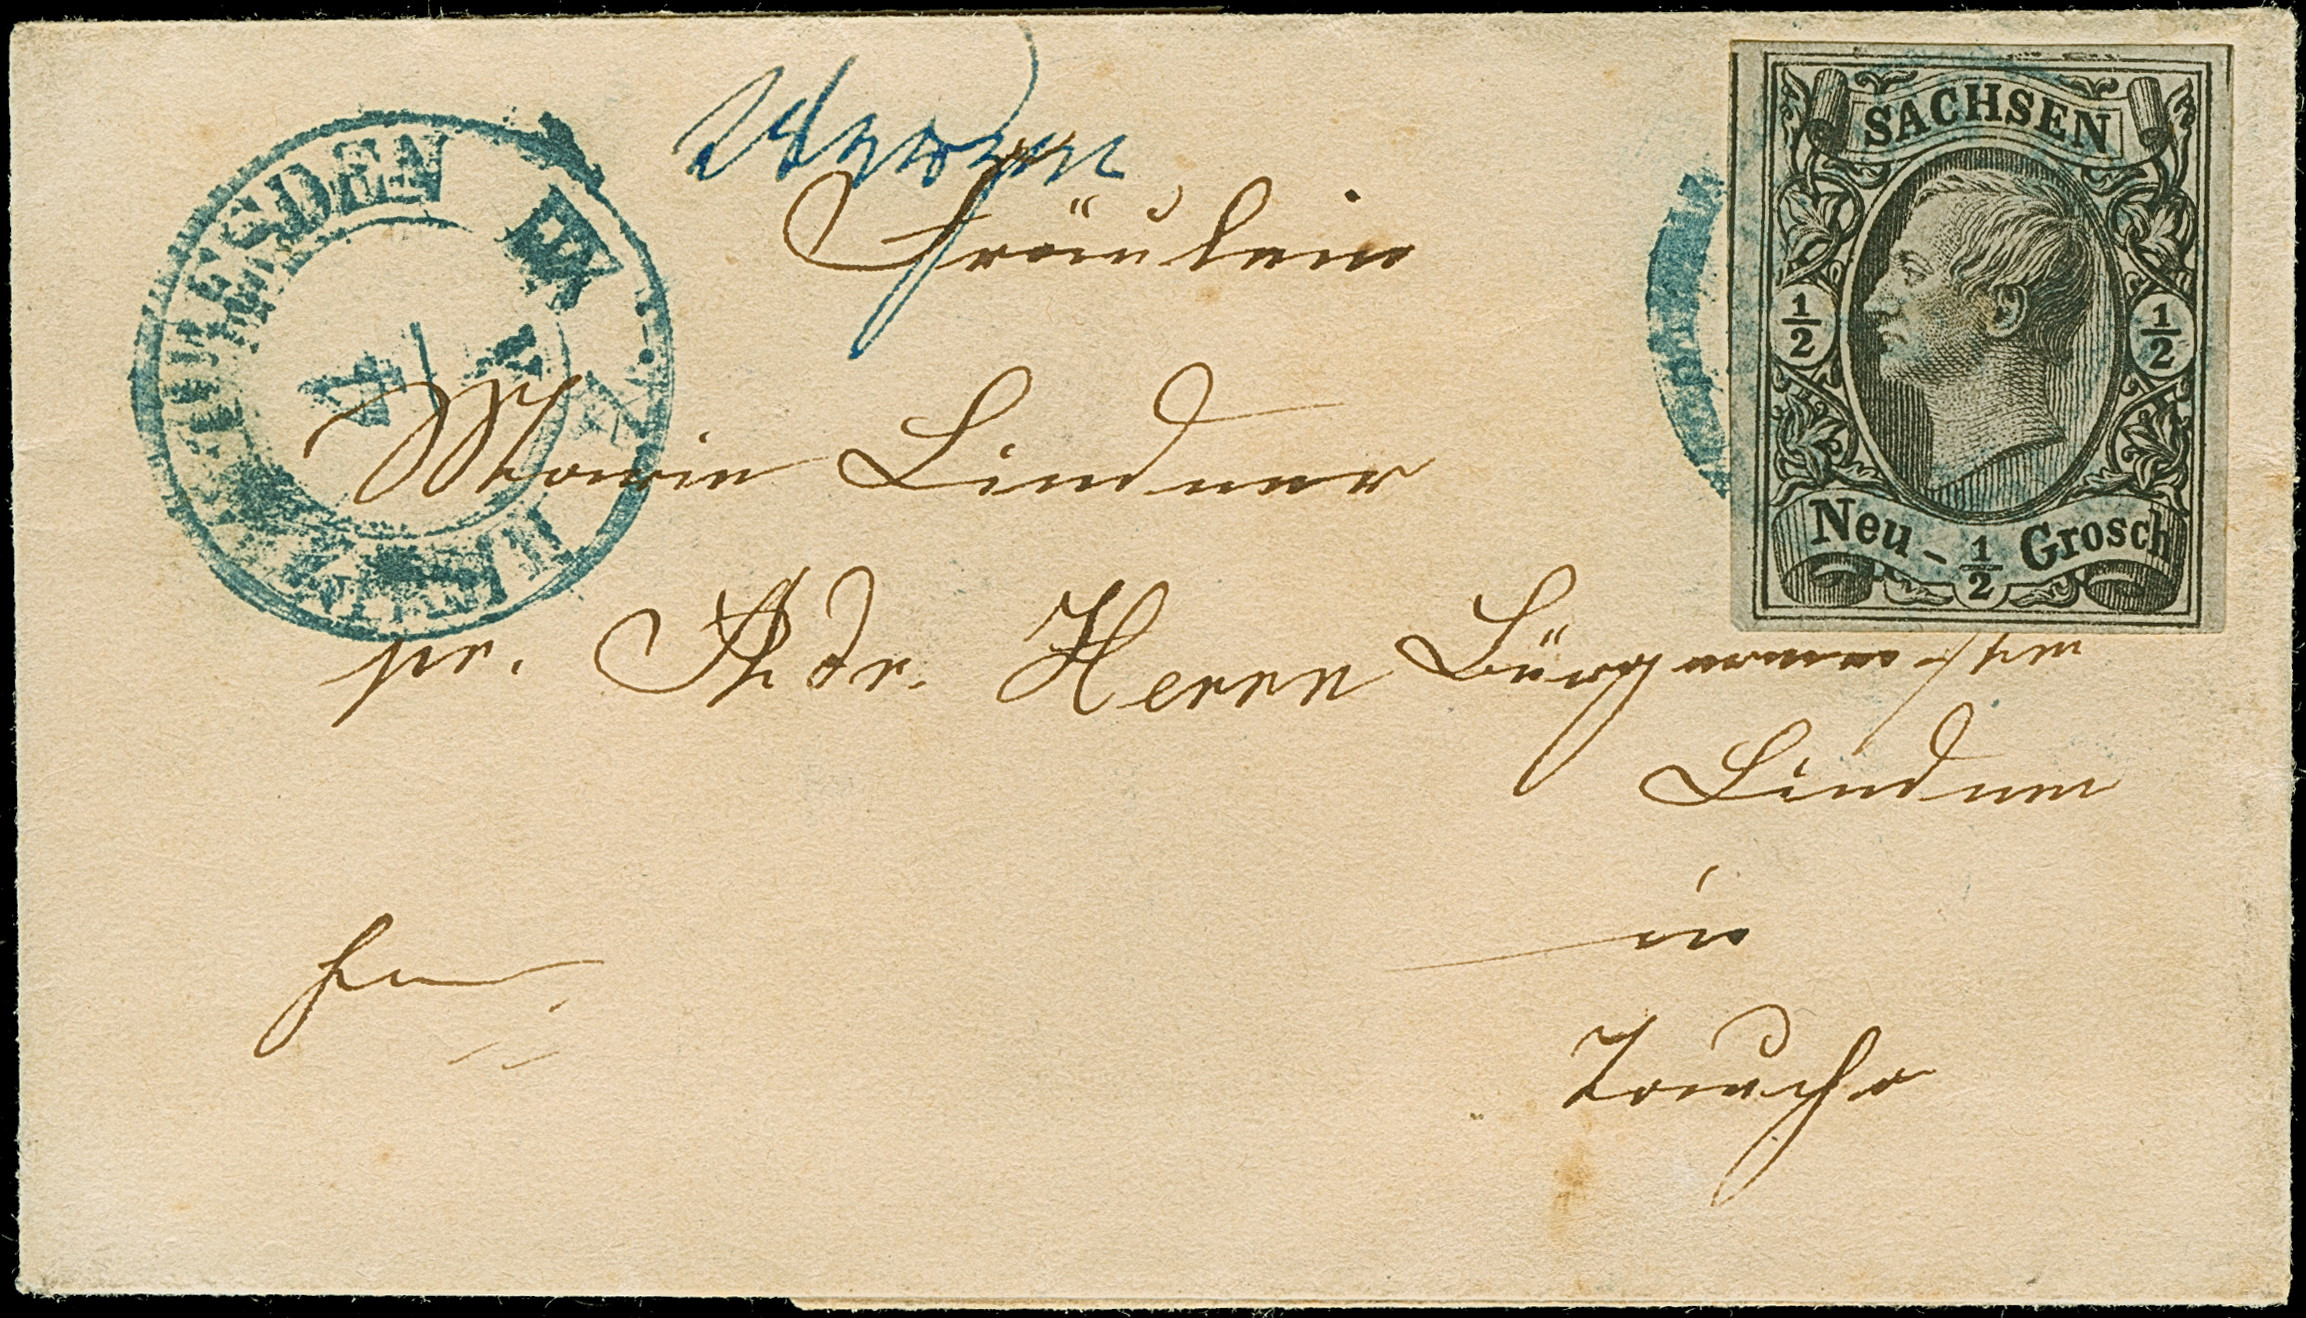 DRESDEN
4
Wurzen
Fräulein
Marie Lindner
pr. Adr. Herrn Bürgermeister
Lindner
in
Taucha
fr
SACHSEN
1/2 1/2
Neu-1/2 Grosch